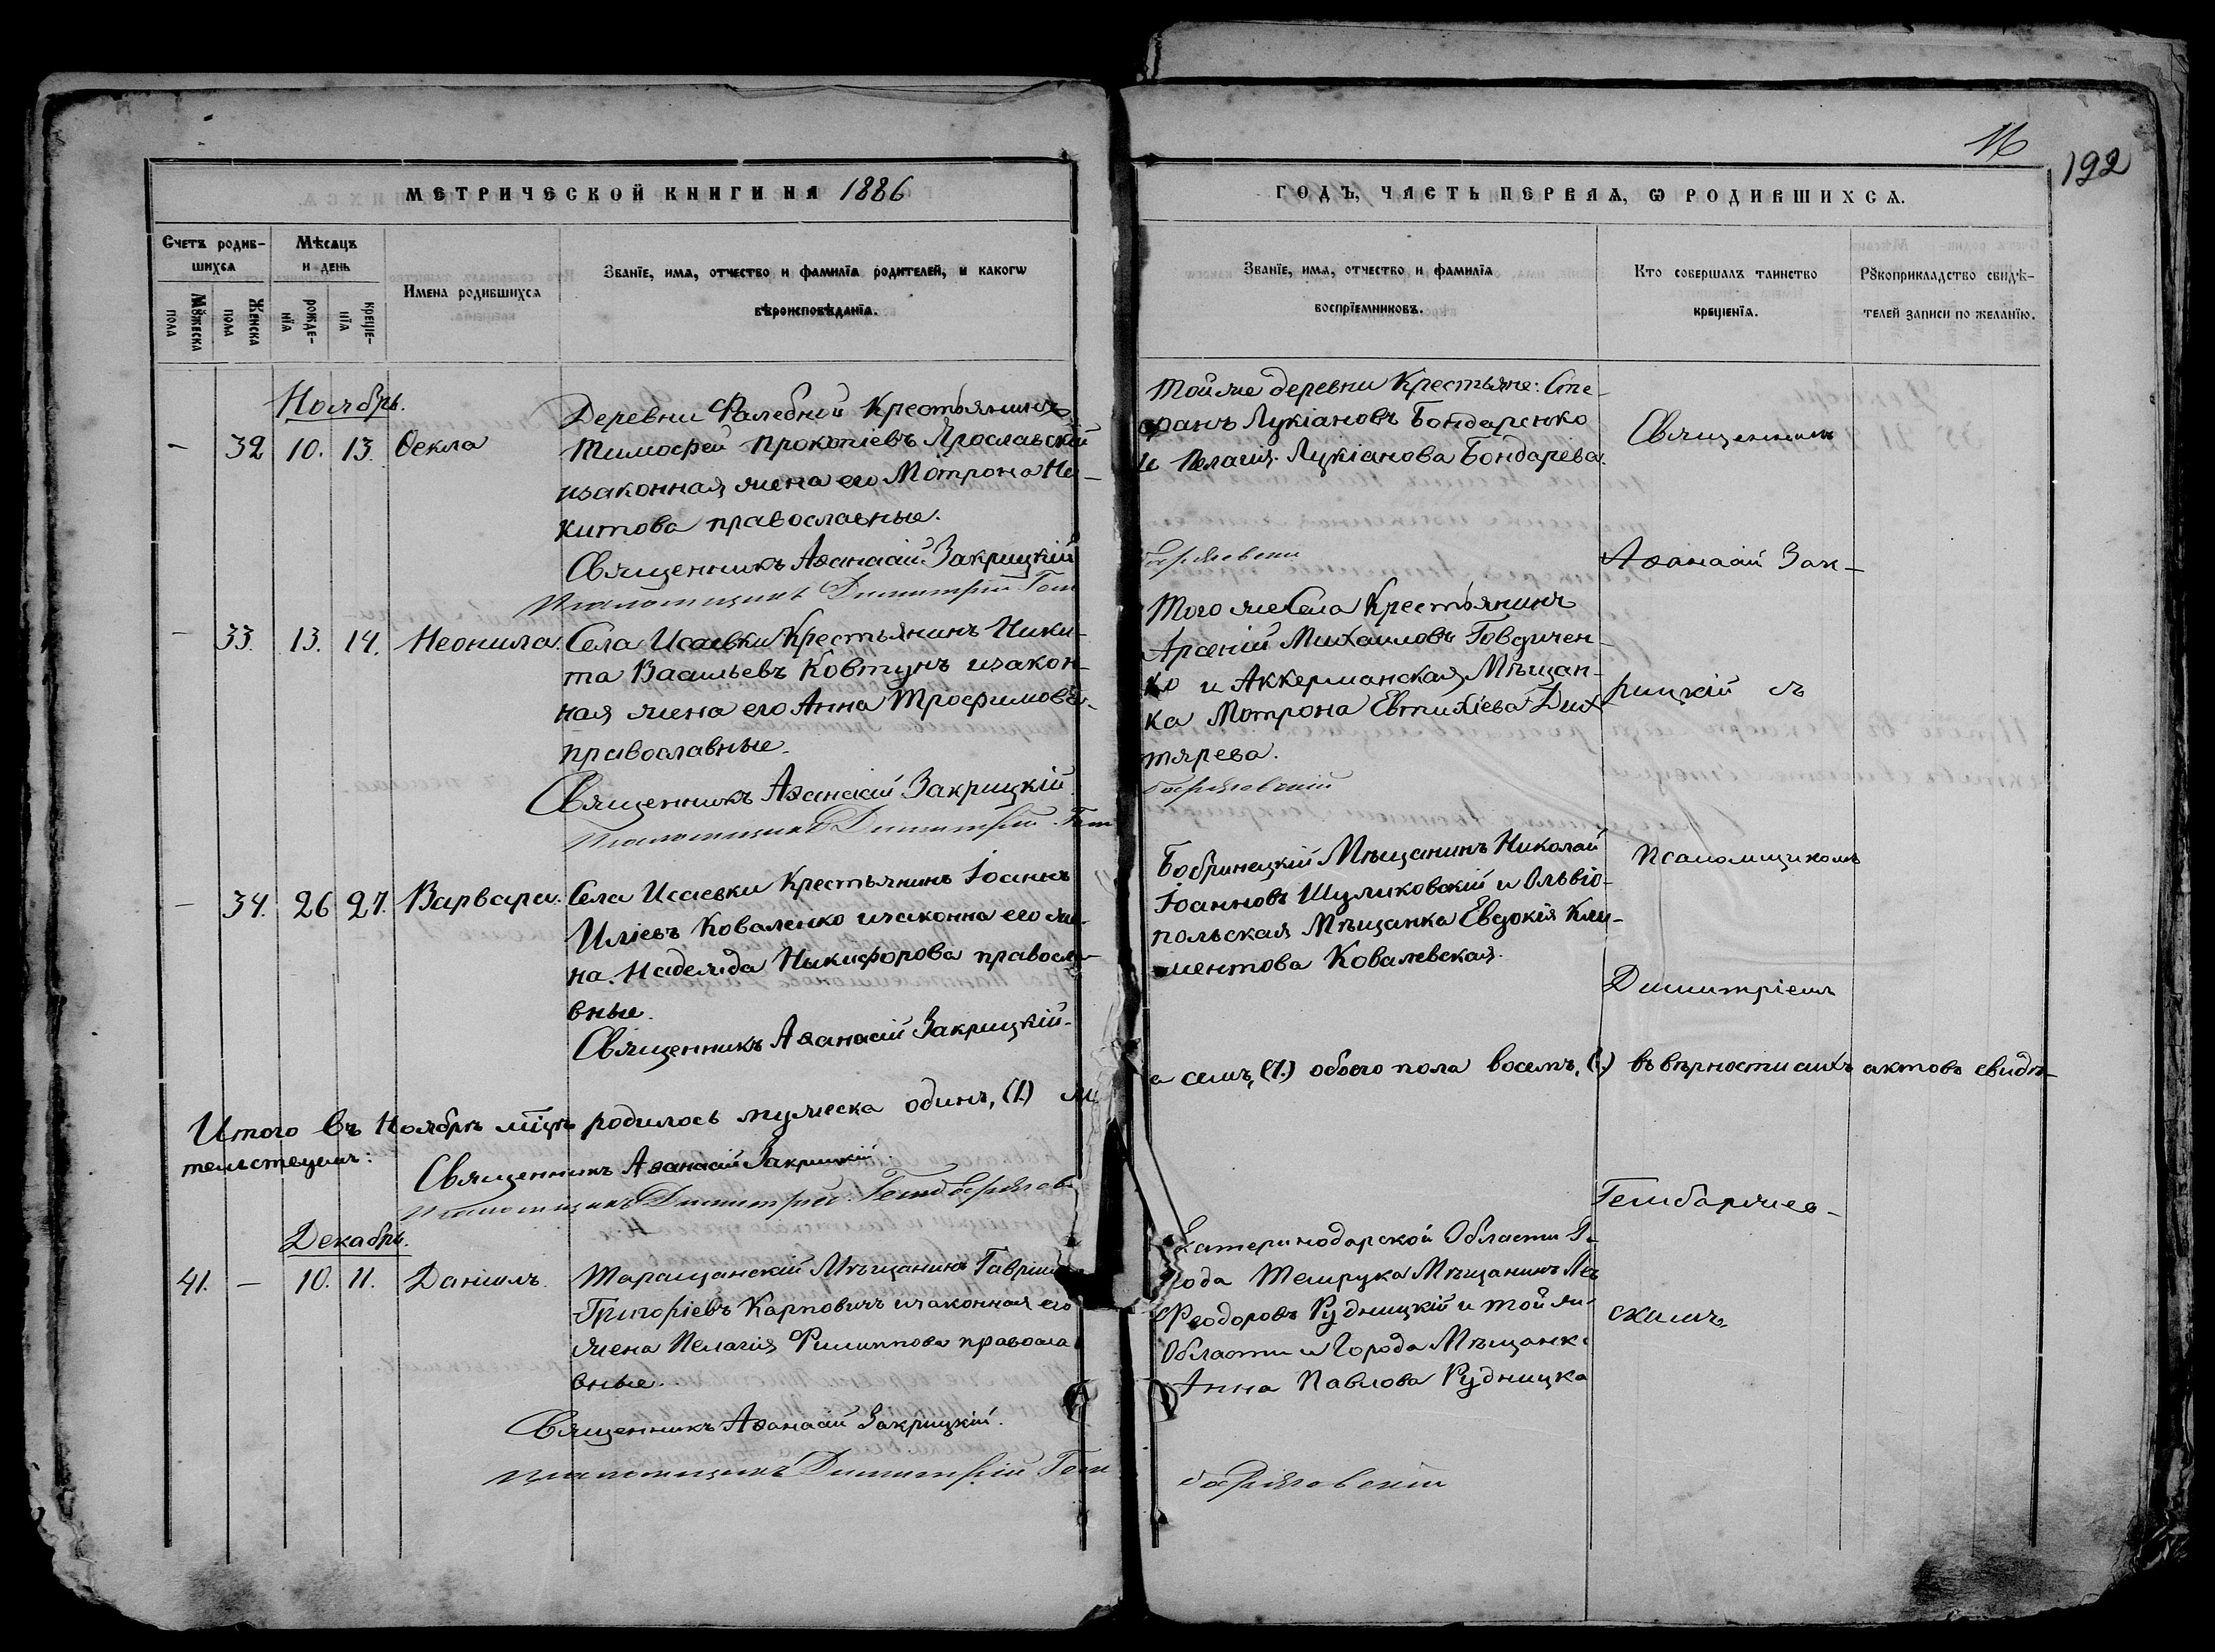 16
192
МЕТРИЧЕСКОЙ КНИГИ НА 1886
ГОДЪ, ЧАСТЬ ПЕРВАЯ, Ѡ РОДИВШИХСѦ.
Счетъ родив-
шихсѧ
Мѣсѧцъ
и день
Имена родившихсѧ
Званїе, имѧ, отчество и фамилїѧ родителей, и какогѡ
вѣроисповѣданїѧ.
Мꙋжеска
пола
Женска
пола
рожде-
нїѧ
креще-
нїѧ
Званїе, имѧ, отчество и фамилїѧ
воспрїемниковъ.
Кто совершалъ таинство
крещенїѧ.
Рꙋкоприкладство свидѣ-
телей записи по желанїю.
Ноябрь.
- 32 10. 13. Ѳекла
Деревни Фалебной Крестьянинъ
Тимофей Прокопіевъ Ярославскій
изаконная жена его Мотрона Не-
китова православные.
Священникъ Аѳанасій Закрицкій
Псаломщикъ Димитрій Гем
Той же деревни Крестьяне: Сте-
фанъ Лукіановъ Бондаренко
и Пелагія Лукіанова Бондарева.
бержевскій
- 33. 13. 14. Неонила.
Села Исаевки Крестьянинъ Ники-
та Васильевъ Ковтунъ изакон-
ная жена его Анна Трофимова
православные.
Священникъ Аѳанасій Закрицкій.
Псаломщикъ Димитрій Гем
Того же Села Крестьянинъ
Арсеній Михаиловъ Говдичен-
ко и Аккерманская Мѣщан-
ка Мотрона Евтихіева Дих
тярева.
- 34. 26 27. Варвара.
Села Исаевки Крестьянинъ Іоаннъ
Иліевъ Коваленко изаконна его же-
на. Надежда Никифорова правосла-
вные.
Священникъ Аѳанасій Закрицкій.
Бобринецкій Мѣщанинъ Николай
Іоанновъ Шуликовскій и Ольвіо-
польская Мѣщанка Евдокія Кли-
ментова Ковалевская.
Итого въ Ноябрѣ мцѣ родилось мужеска одинъ, (1.) же
а семь, (7.) обоего пола восемь, въ вѣрности сихъ актовъ свидѣ-
тельствуемъ:
Священникъ Аѳанасій Закрицкій.
Псаломщикъ Димитрій
Декабрь.
41. - 10. 11. Даніилъ.
Таращанскій Мѣщанинъ Гавриил
Григоріевъ Карповичъ изаконная его
жена Пелагія Филиппова правосла
вные.
Священникъ Аѳанасій Закрицкій.
Псаломщикъ Димитрій Гем
Екатеринодарской Области Го-
рода Темрука Мѣщанинъ Лев
Феодоровъ Рудницкій и той же
Области и Города Мѣщанка
Анна Павлова Рудницка
Священникъ
Аѳанасій Зак-
рицкій съ
Псаломщикомъ
Димитріемъ
Гембаржев-
скимъ.